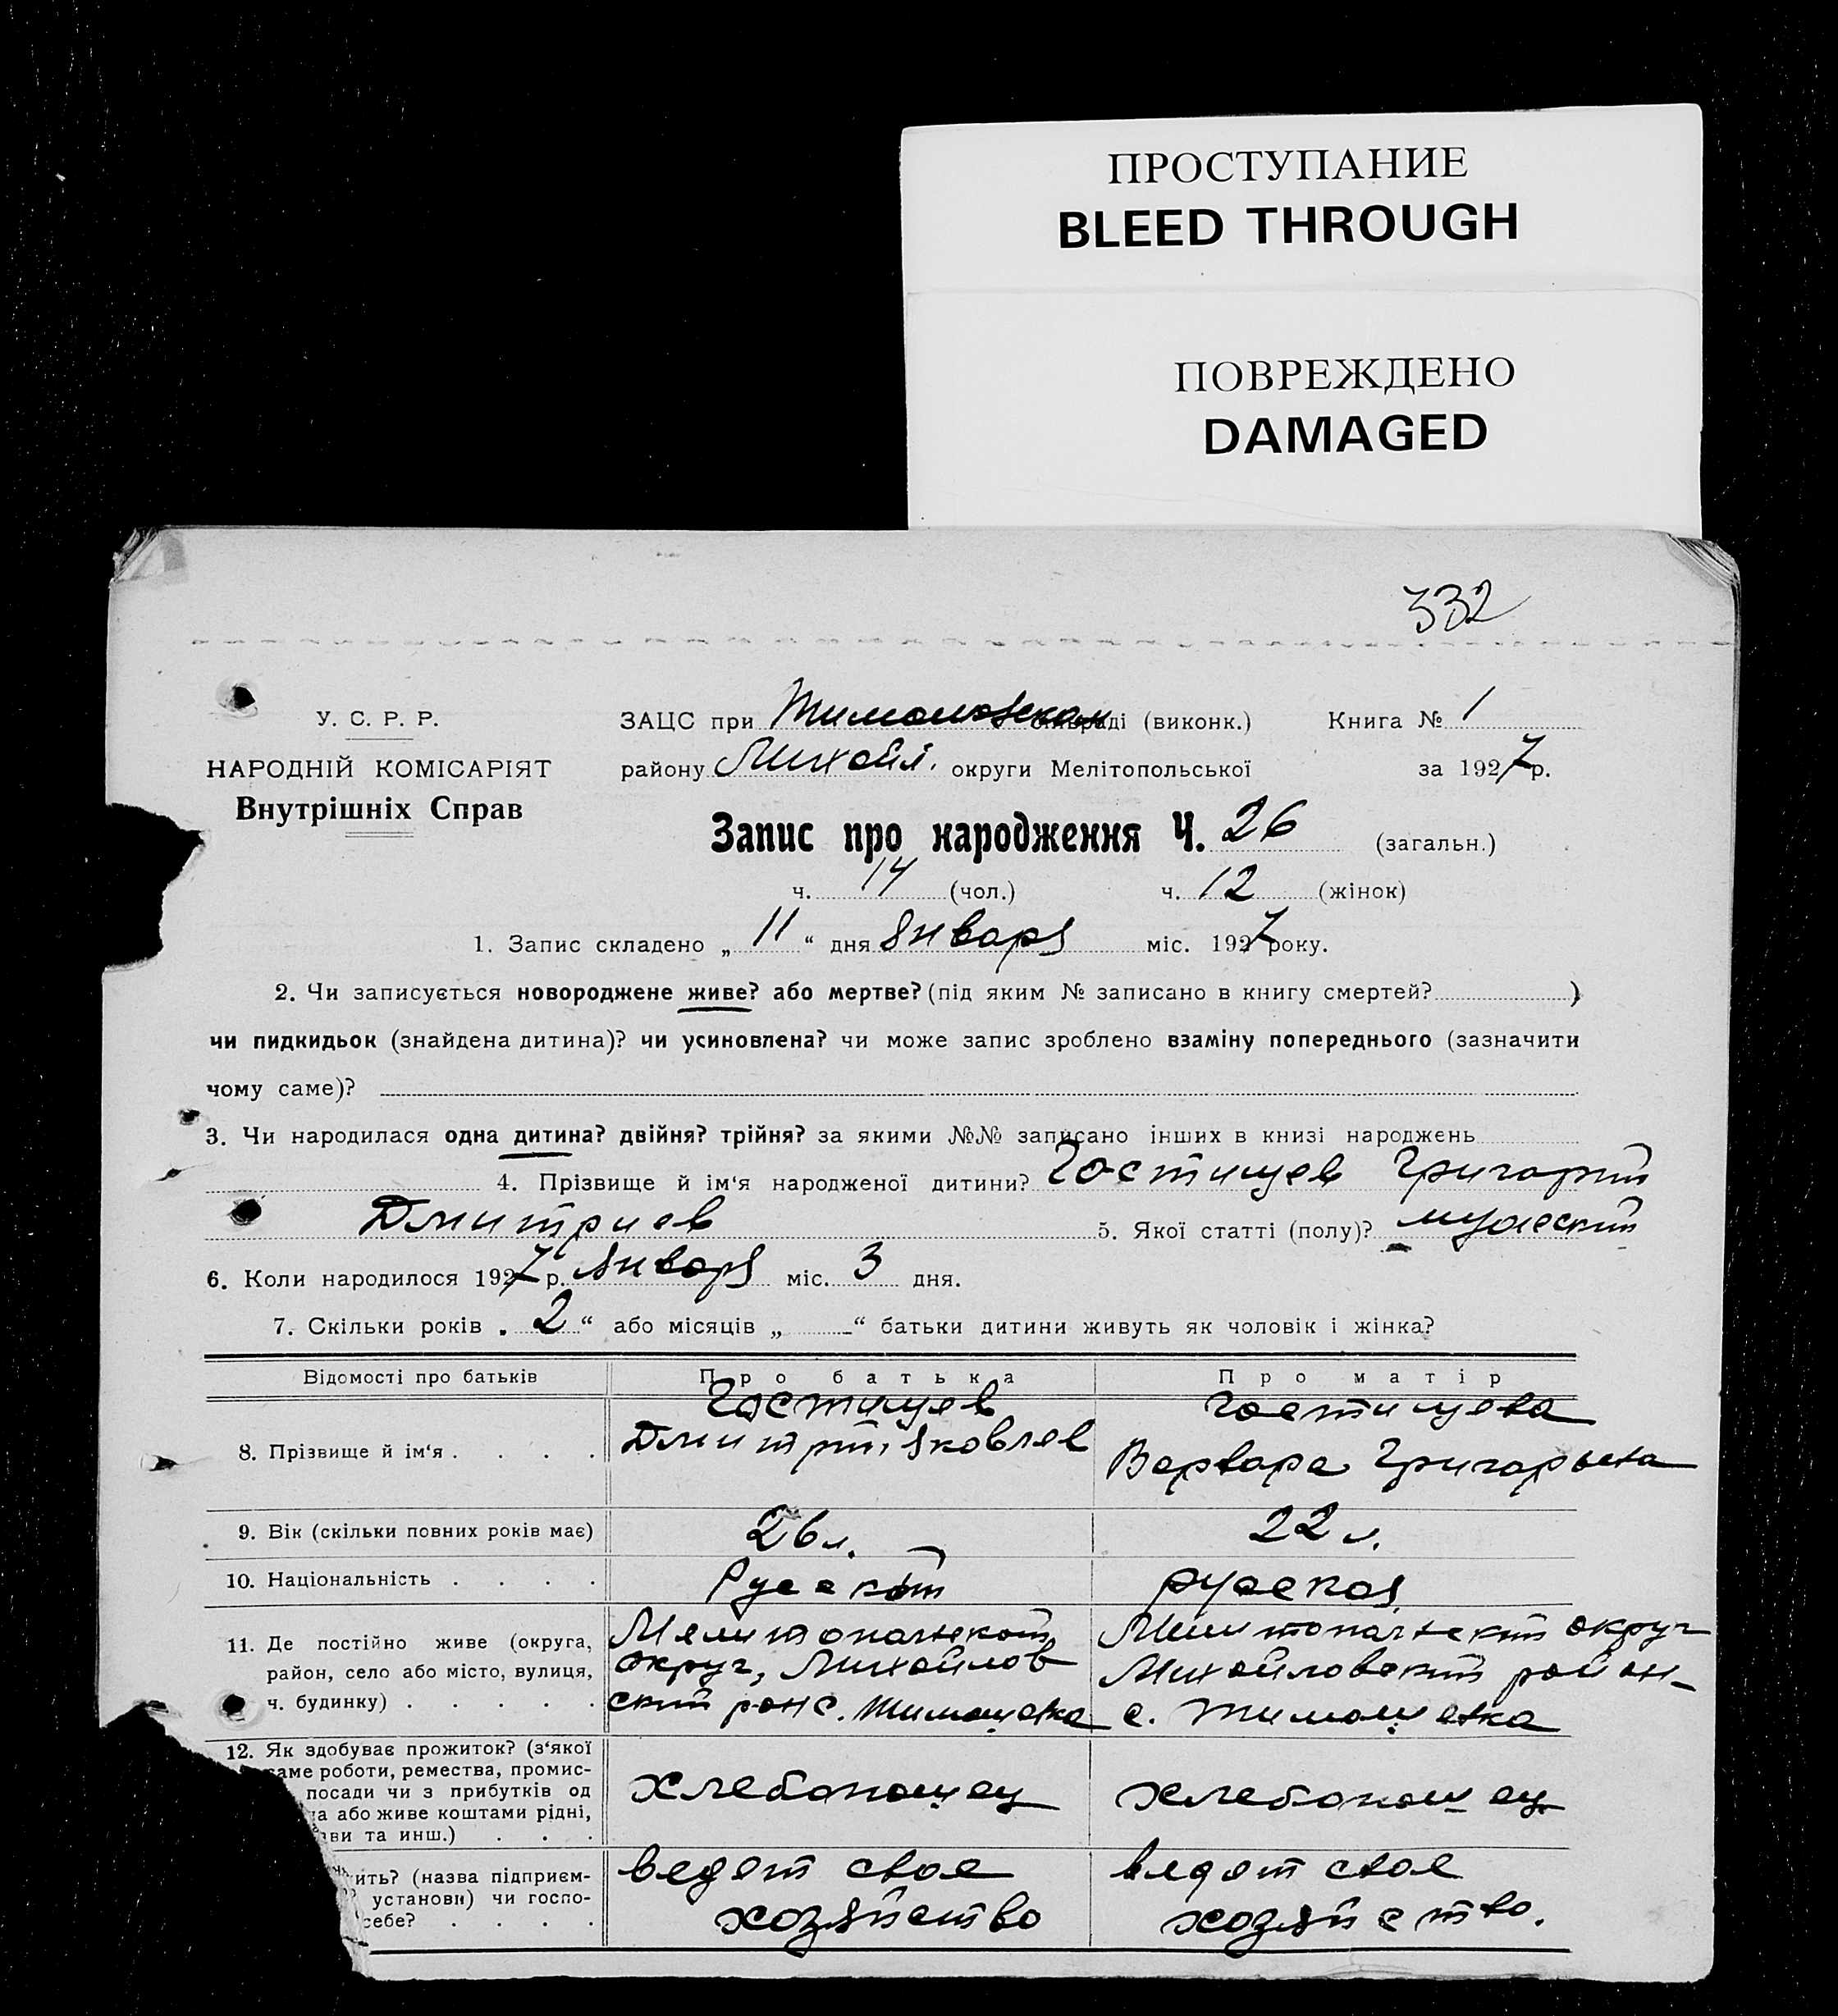 ПРОСТУПАНИЕ
BLEED THROUGH
ПОВРЕЖДЕНО
DAMAGED
332
У. С. Р. Р.
НАРОДНІЙ КОМІСАРІЯТ
Внутрішніх Справ
ЗАЦС при Тимошовскам сільраді (виконк.) Книга № 1
району Михайл. округи Мелітопольської за 1927 р.
Запис про народження Ч. 26 (загальн.)
ч. 14 (чол.) ч. 12 (жінок)
1. Запис складено „ 11 “ дня Января міс. 1927 року.
2. Чи записується новороджене живе? або мертве? (під яким № записано в книгу смертей? )
чи пидкидьок (знайдена дитина)? чи усиновлена? чи може запис зроблено взаміну попереднього (зазначити
чому саме)?
3. Чи народилася одна дитина? двійня? трійня? за якими №№ записано інших в книзі народжень
4. Прізвище й ім‘я народженої дитини? Гостищев Григорий
Дмитриев 5. Якої статті (полу)? мужский
6. Коли народилося 1927 р. Января міс. 3 дня.
7. Скільки років „ 2 “ або місяців „ “ батьки дитини живуть як чоловік і жінка?
Відомості про батьків Про батька Про матір
8. Прізвище й ім‘я . . . .
Гостищев
Дмитрий Яковлев
Гостищева
Варвара Григорьевна
9. Вік (скільки повних років має) 26 л. 22 л.
10. Національність . . . . Русский русская
11. Де постійно живе (округа,
район, село або місто, вулиця,
ч. будинку) . . . . .
Мелитопальский
округ, Михайлов
ский рон с. Тимошевка
Мелитопальский округ
Михайловский район
с. Тимошевка
12. Як здобуває прожиток? (з‘якої
саме роботи, ремества, промис-
посади чи з прибутків од
на або живе коштами рідні,
ви та инш.) . . .
хлебопошец
хлебопошец
ить? (назва підприєм-
установи) чи госпо-
себе? . . . .
ведет свое
хозяйство
ведет свое
хозяйство.